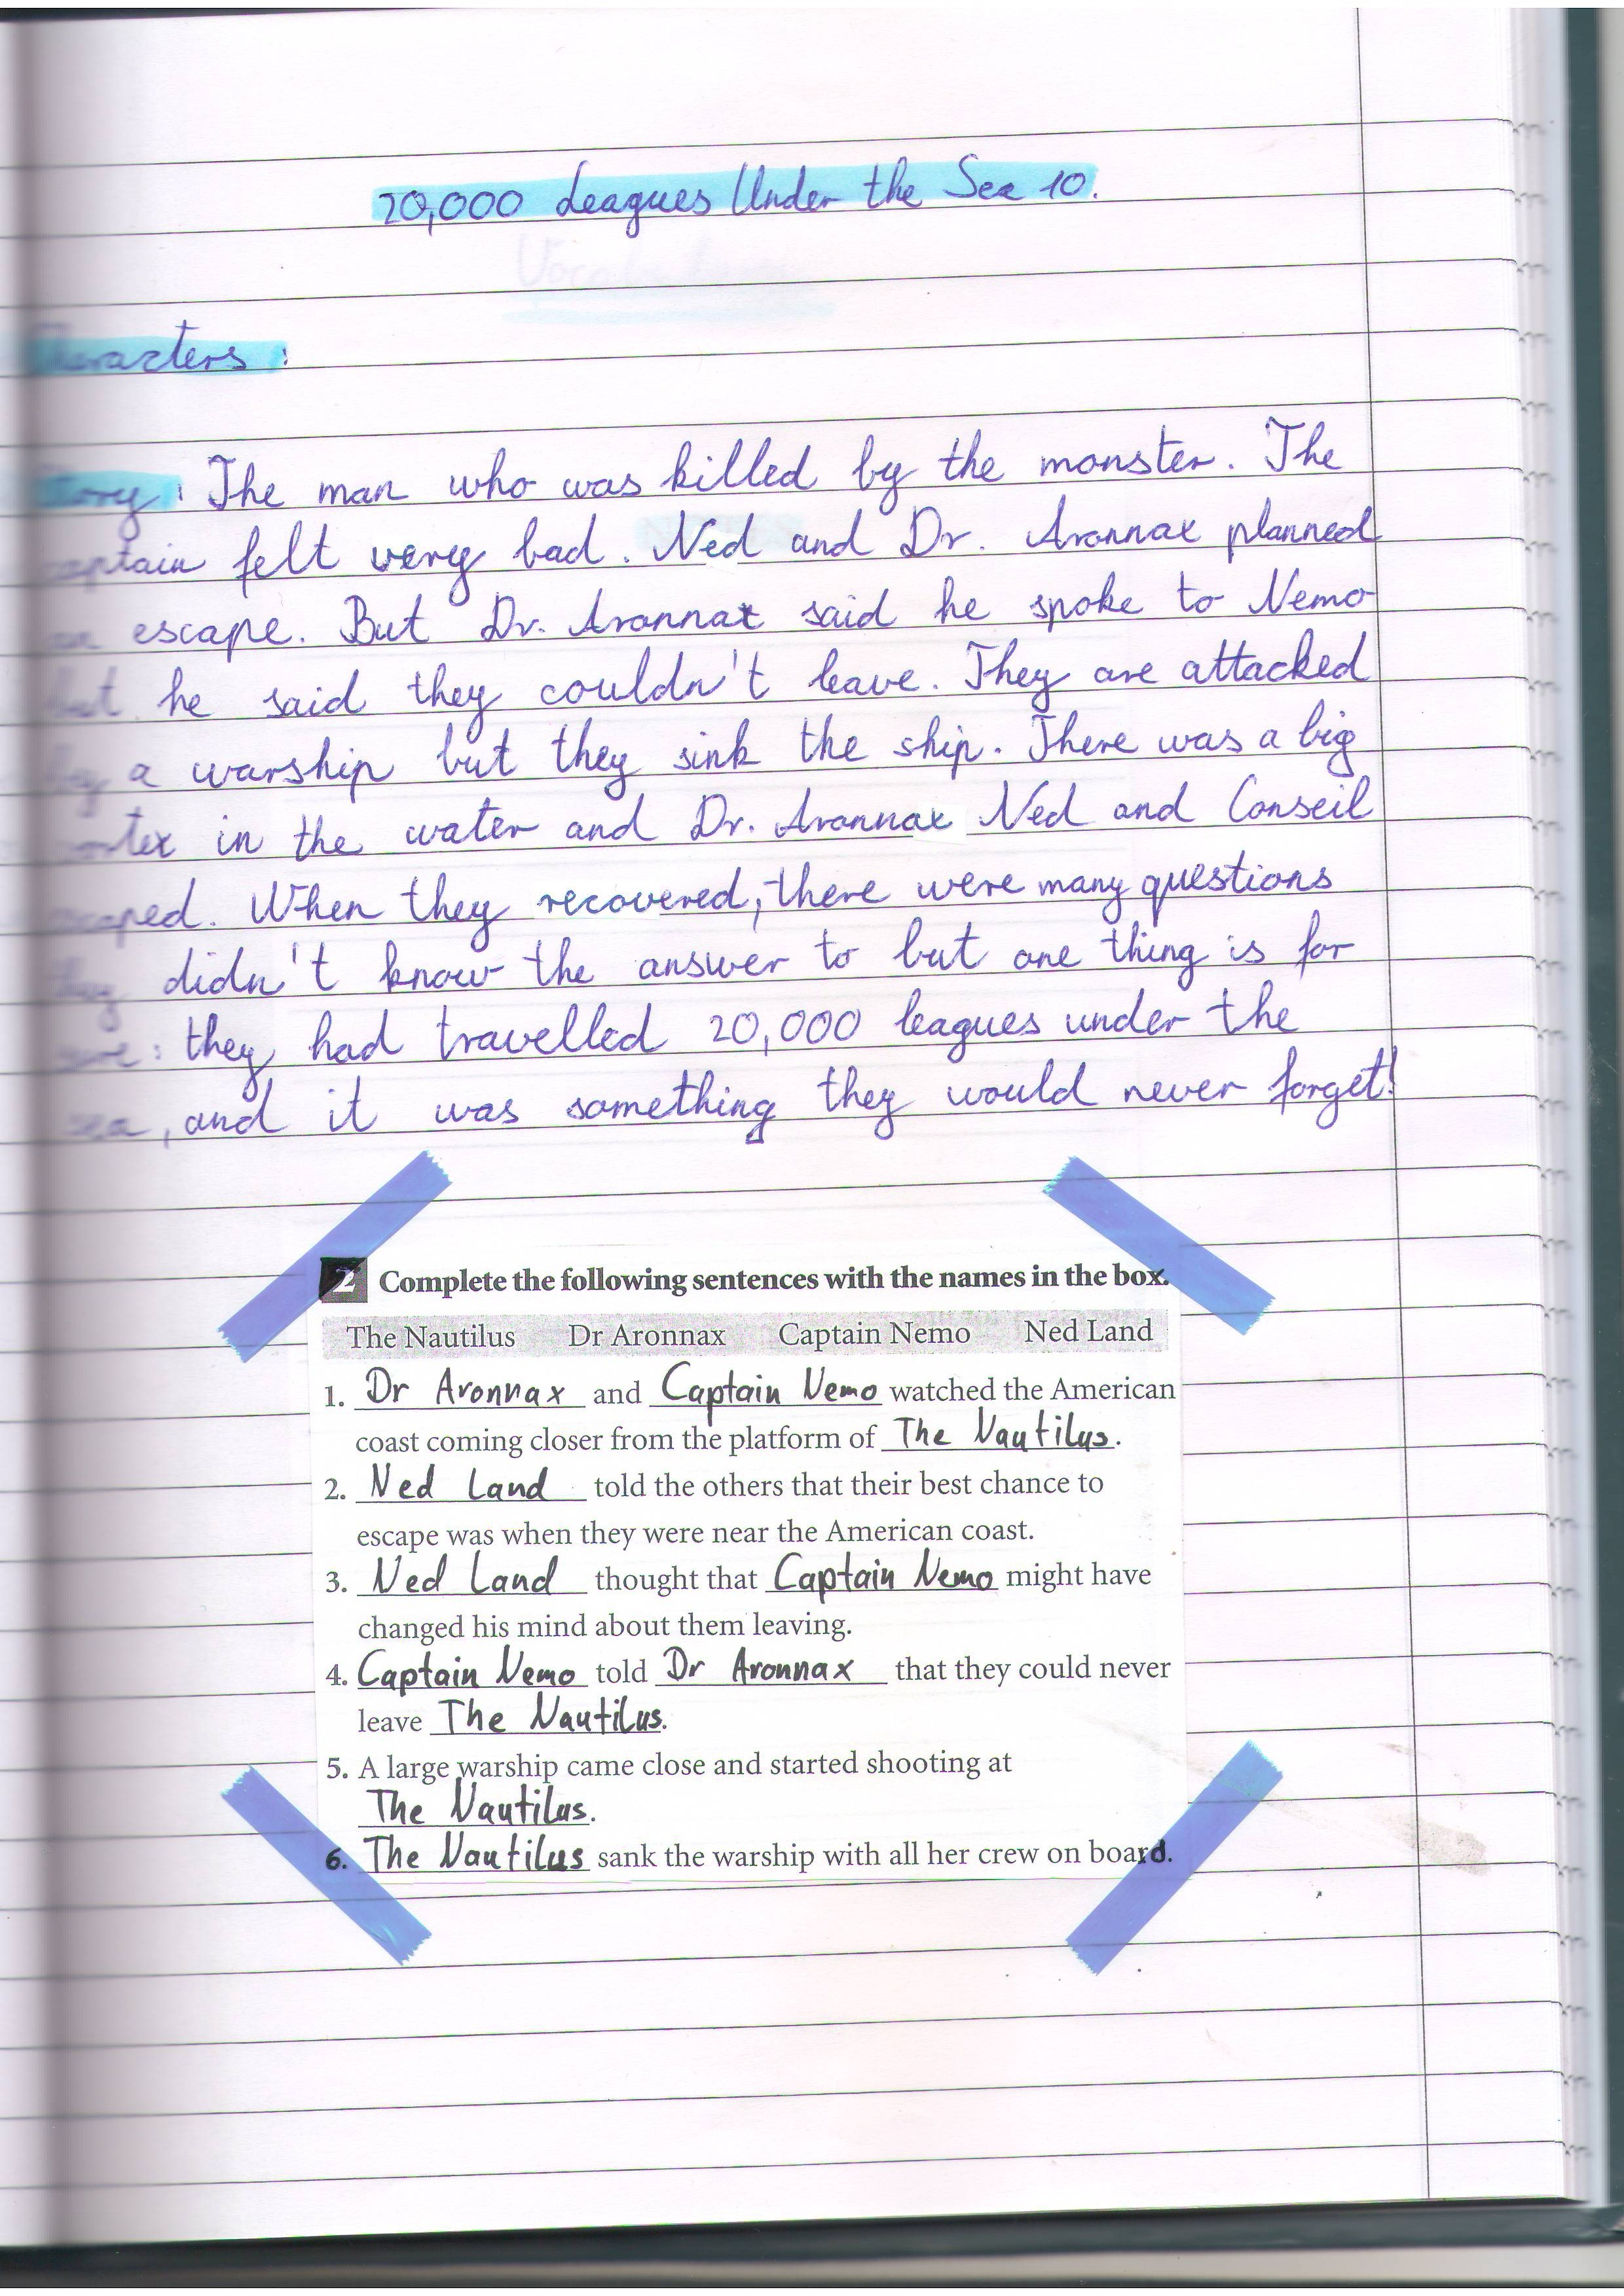 20,000 Leagues Under the Sea 10.
Characters:
Story: The man who was killed by the monster. The
captain felt very bad. Ned and Dr. Aronnax planned
an escape. But Dr. Aronnax said he spoke to Nemo
but he said they couldn't leave. They are attacked
by a warship but they sink the ship. There was a big
vortex in the water and Dr. Aronnax Ned and Conseil
escaped. When they recovered, there were many questions
they didn't know the answer to but one thing is for
sure: they had travelled 20,000 leagues under the
sea, and it was something they would never forget!
2 Complete the following sentences with the names in the box.
The Nautilus Dr Aronnax Captain Nemo Ned Land
1. Dr Aronnax and Captain Nemo watched the American
coast coming closer from the platform of The Nautilus.
2. Ned Land told the others that their best chance to
escape was when they were near the American coast.
3. Ned Land thought that Captain Nemo might have
changed his mind about them leaving.
4. Captain Nemo told Dr Aronnax that they could never
leave The Nautilus.
5. A large warship came close and started shooting at
The Nautilus.
6. The Nautilus sank the warship with all her crew on board.